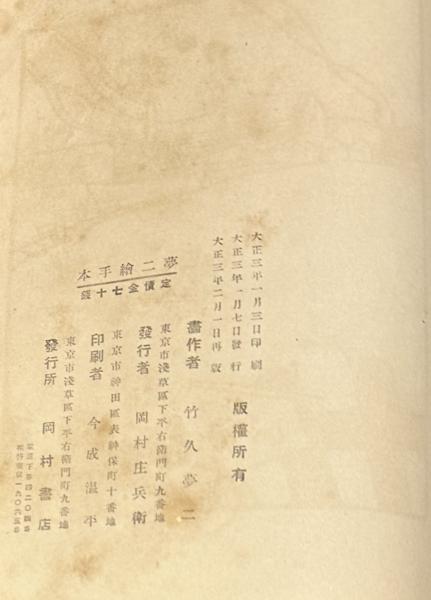 大正三年一月三日印刷
大正三年一月七日發行
大正三年二月一日再版
版權所有
夢二繪手本
定價金七十錢
畵作者 竹久夢二
東京市淺草區下平右衛門町九番地
發行者 岡村庄兵衛
東京市神田區表神保町十番地
印刷者 今成温平
東京市淺草區下平右衛門町九番地
發行所 岡村書店
電話下谷四二〇四番